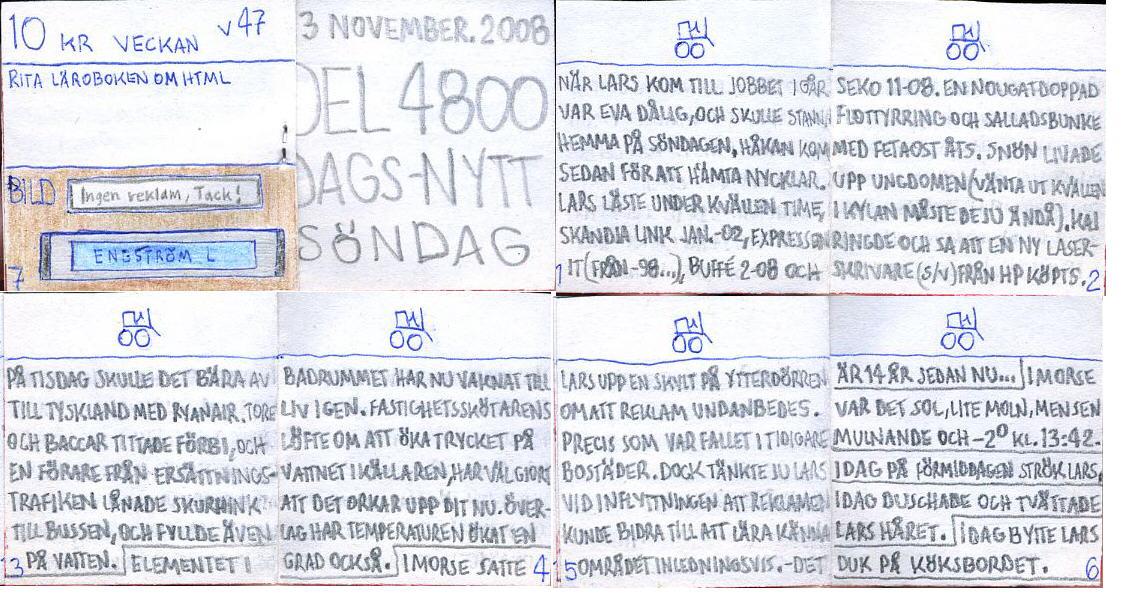 10 KR VECKAN V47
RITA LÄROBOKEN OM HTML
BILD
Ingen reklam, Tack!
ENGSTRÖM L
7
3 NOVEMBER. 2008
DEL 4800
DAGS-NYTT
SÖNDAG
NÄR LARS KOM TILL JOBBET IGÅR
VAR EVA DÅLIG, OCH SKULLE STANNA
HEMMA PÅ SÖNDAGEN, HÅKAN KOM
SEDAN FÖR ATT HÄMTA NYCKLAR.
LARS LÄSTE UNDER KVÄLLEN TIME,
SKANDIA LINK JAN.-02, EXPRESSEN
IT (FRÅN -98...), BUFFÉ 2-08 OCH
1
SEKO 11-08. EN NOUGATDOPPAD
FLOTTYRRING OCH SALLADSBUNKE
MED FETAOST ÅTS. SNÖN LIVADE
UPP UNGDOMEN (VÄNTA UT KVÄLLEN
I KYLAN MÅSTE DE JU ÄNDÅ), KAI
RINGDE OCH SA ATT EN NY LASER-
SKRIVARE (S/V) FRÅN HP KÖPTS.
2
PÅ TISDAG SKULLE DET BÄRA AV
TILL TYSKLAND MED RYANAIR. TORE
OCH BACCAR TITTADE FÖRBI, OCH
EN FÖRARE FRÅN ERSÄTTNINGS-
TRAFIKEN LÅNADE SKURHINK
TILL BUSSEN, OCH FYLLDE ÄVEN
3 PÅ VATTEN. ELEMENTET I
BADRUMMET HAR NU VAKNAT TILL
LIV IGEN. FASTIGHETSSKÖTARENS
LÖFTE OM ATT ÖKA TRYCKET PÅ
VATTNET I KÄLLAREN, HAR VÄL GJORT
ATT DET ORKAR UPP DIT NU. ÖVER-
LAG HAR TEMPERATUREN ÖKAT EN
GRAD OCKSÅ. I MORSE SATTE 4
LARS UPP EN SKYLT PÅ YTTERDÖRREN
OM ATT REKLAM UNDANBEDES.
PRECIS SOM VAR FALLET I TIDIGARE
BOSTÄDER. DOCK TÄNKTE JU LARS
VID INFLYTTNINGEN ATT REKLAMEN
KUNDE BIDRA TILL ATT LÄRA KÄNNA
5 OMRÅDET INLEDNINGSVIS. -DET
ÄR 14 ÅR SEDAN NU... I MORSE
VAR DET SOL, LITE MOLN, MEN SEN
MULNANDE OCH -2° KL. 13:42.
IDAG PÅ FÖRMIDDAGEN STRÖK LARS,
IDAG DUSCHADE OCH TVÄTTADE
LARS HÅRET. IDAG BYTTE LARS
DUK PÅ KÖKSBORDET. 6